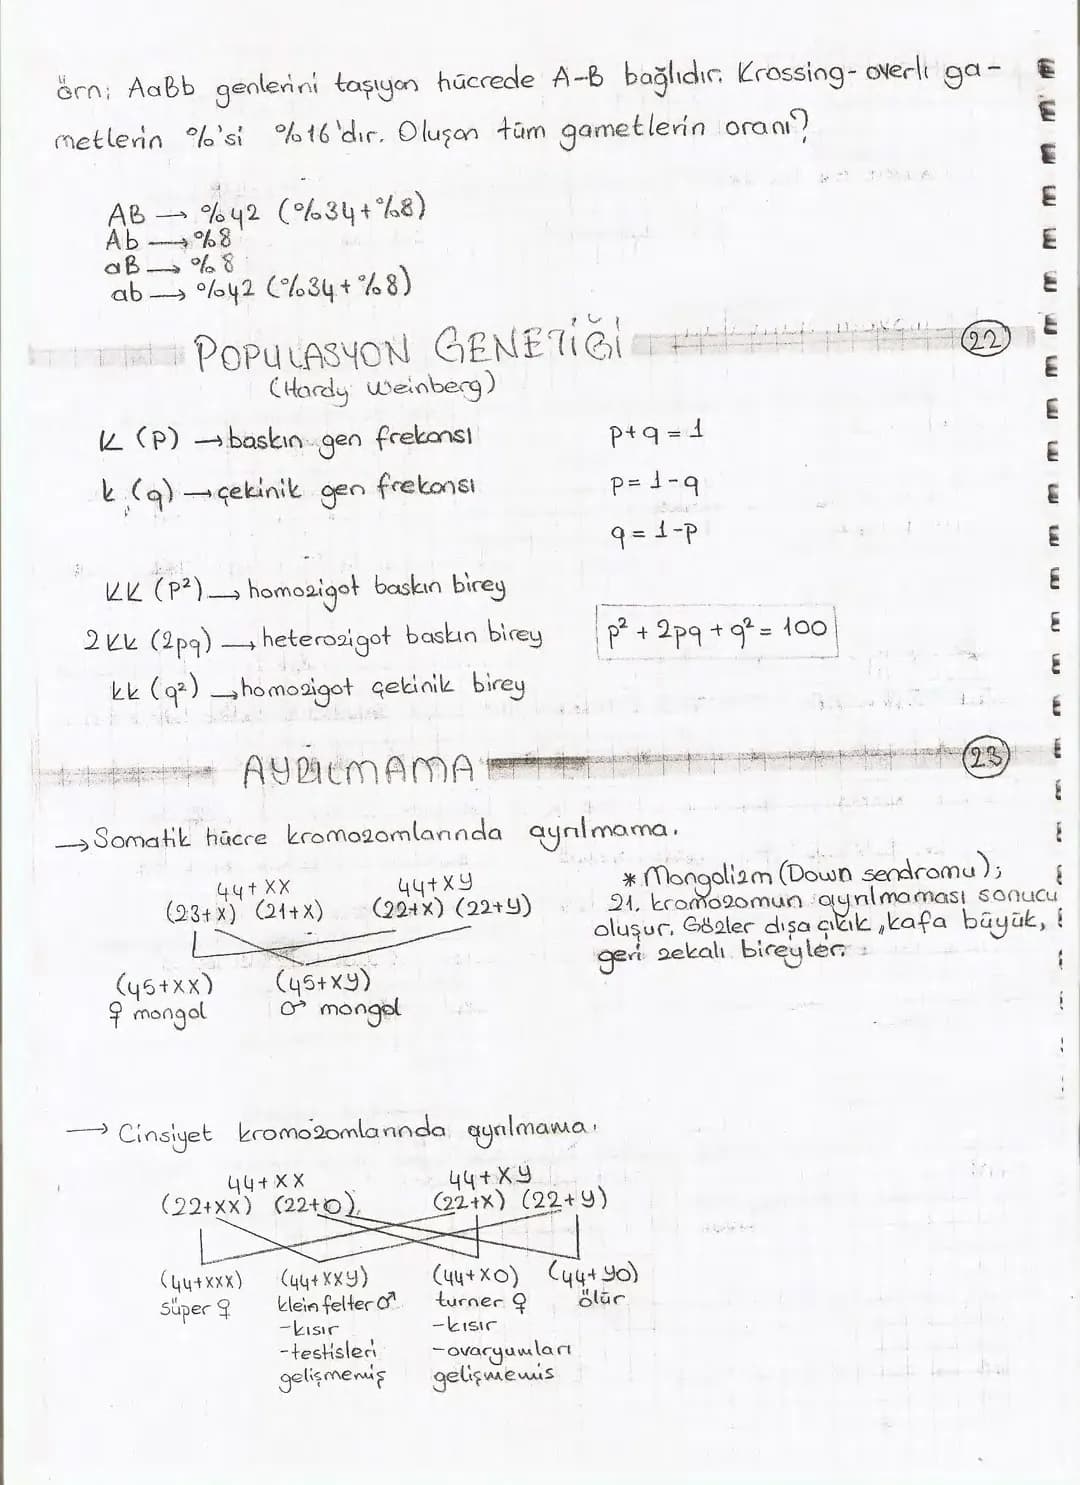 örn; AaBb genlerini taşıyan hücrede A-B bağlıdır. Krossing-overli ga-
metlerin %'si %16'dır. Oluşan tüm gametlerin oranı?
AB → %42 (%34+%8)
Ab → %8
aB → %8
ab → %42 (%34+%8)
POPULASYON GENETİĞİ 22
(Hardy Weinberg)
K (p) → baskın gen frekansı
k (q) → çekinik gen frekansı
p+q = 1
p = 1-q
q = 1-p
KK (p²) → homozigot baskın birey
2Kk (2pq) → heterozigot baskın birey
kk (q²) → homozigot çekinik birey
p² + 2pq + q² = 100
AYRILMAMA 23
→ Somatik hücre kromozomlarında ayrılmama.
44+XX 44+XY
(23+X) (21+X) (22+X) (22+Y)
(45+XX) (45+XY)
♀ mongol ♂ mongol
* Mongolizm (Down sendromu);
21. kromozomun ayrılmaması sonucu
oluşur. Gözler dışa çıkık, kafa büyük,
geri zekalı bireyler.
→ Cinsiyet kromozomlarında ayrılmama.
44+XX 44+XY
(22+XX) (22+0) (22+X) (22+Y)
(44+XXX) (44+XXY) (44+XO) (44+YO)
süper ♀ kleinfelter ♂ turner ♀ ölür
-kısır -kısır
-testisleri -ovaryumları
gelişmemiş gelişmemis